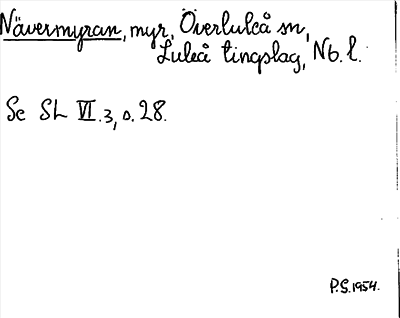 Nävermyran, myr, Överluleå sn,
Luleå tingslag, Nb. l.
Se SL VI.3, s. 28.
P.S. 1954.